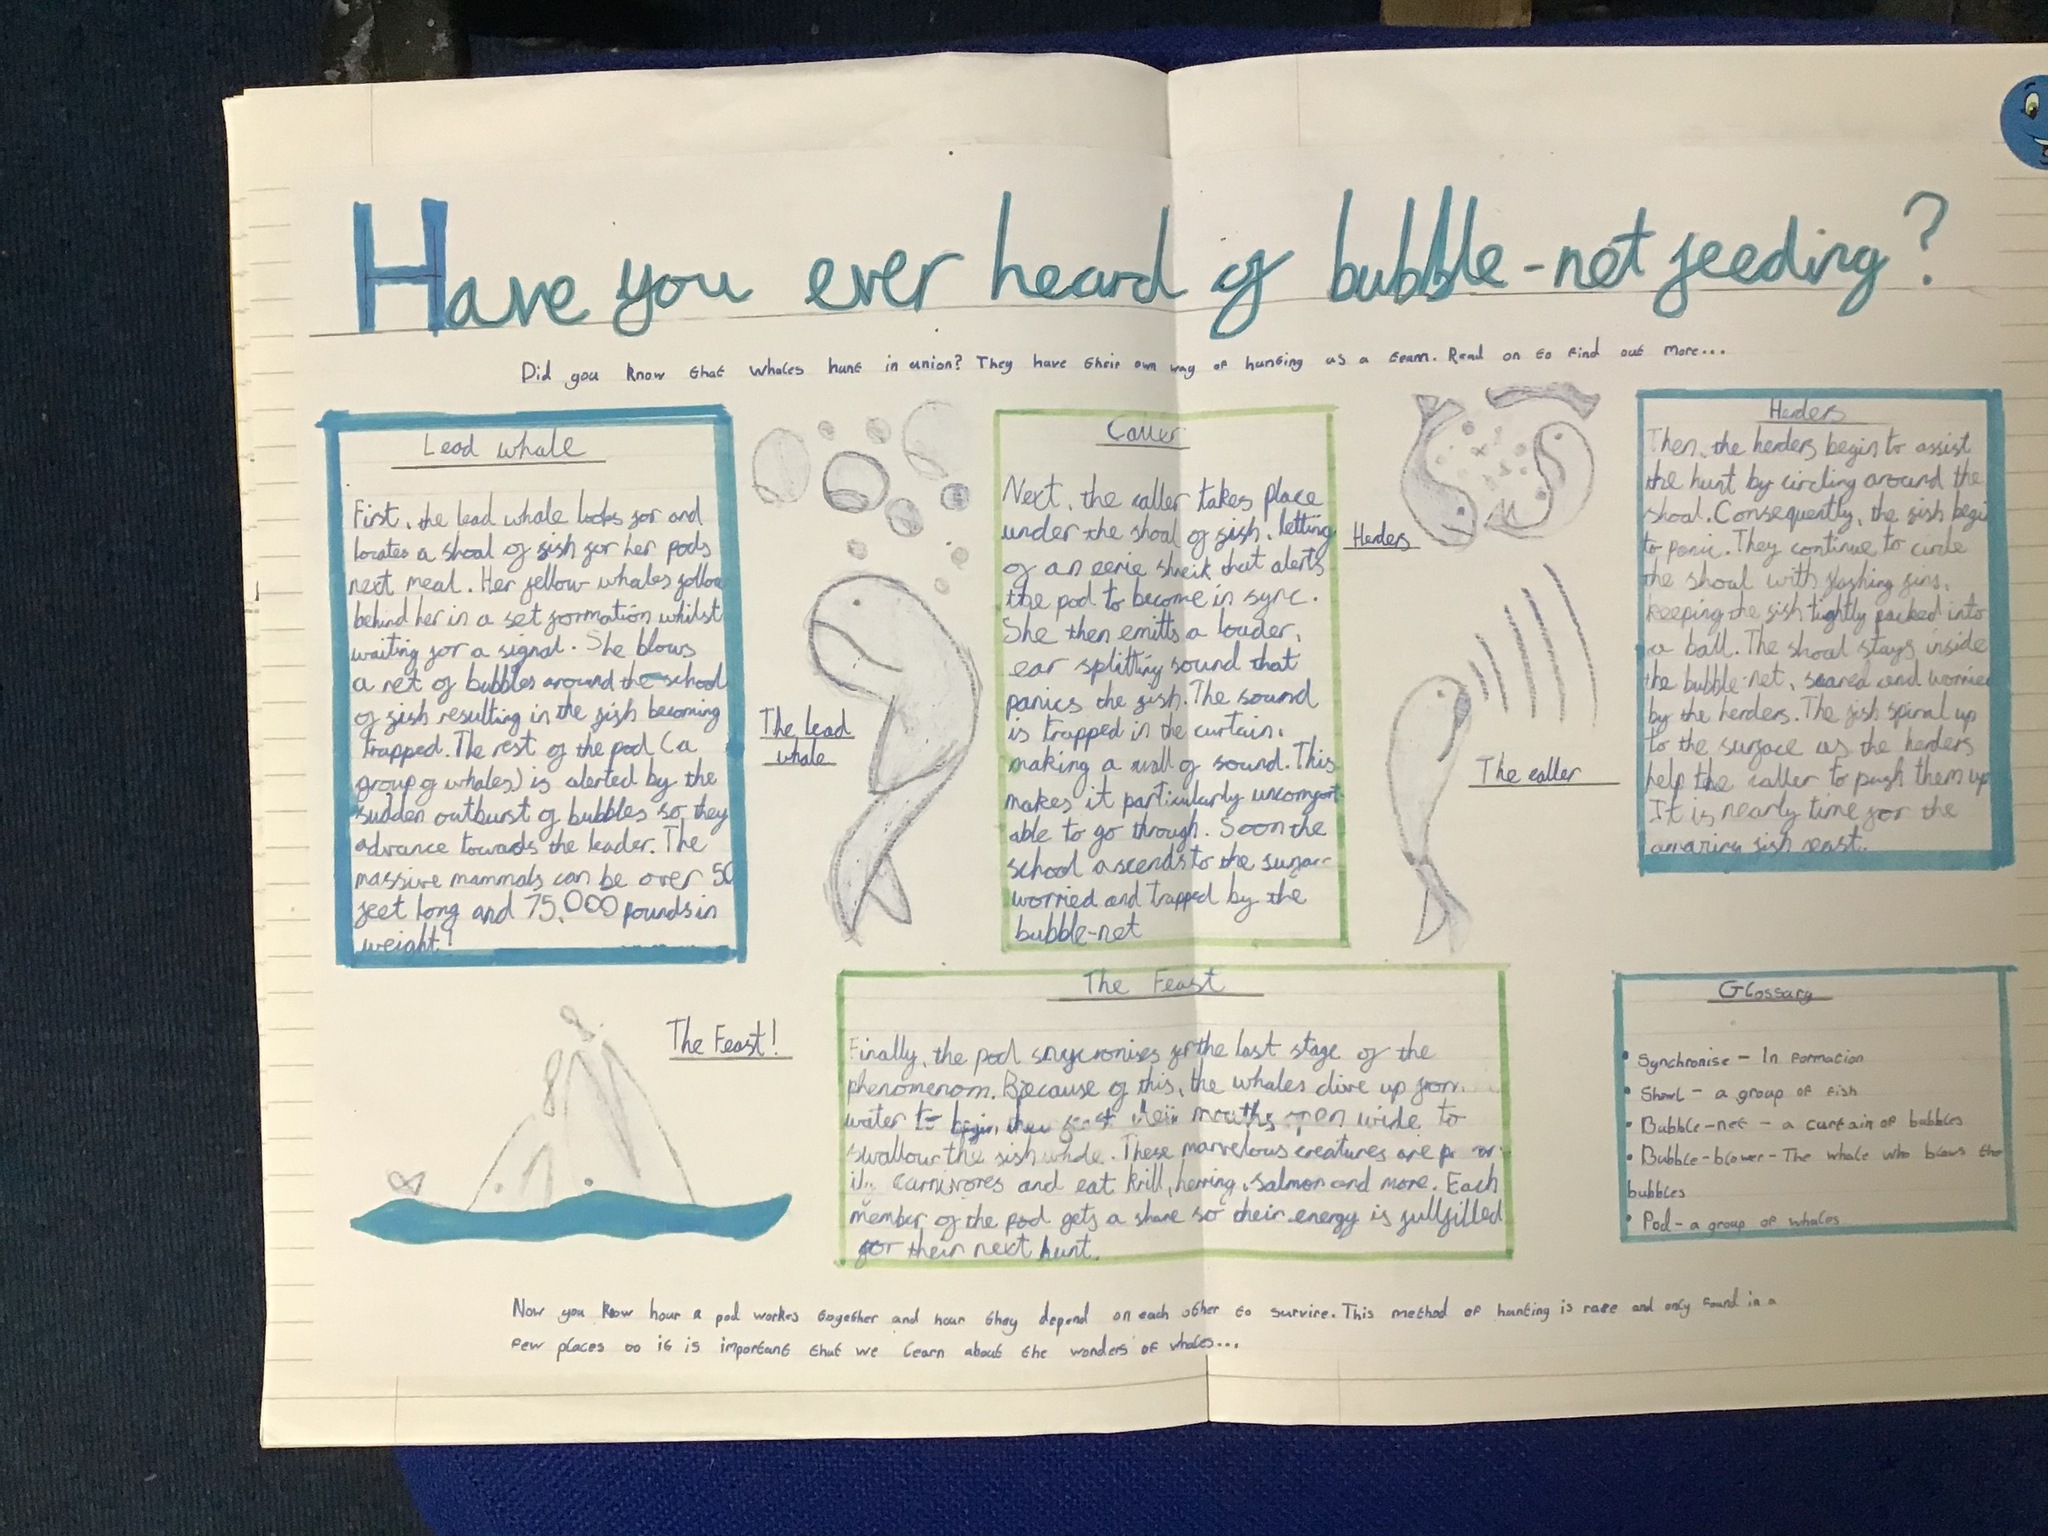 Have you ever heard of bubble-net feeding?
Did you know that whales hunt in union? They have their own way of hunting as a team. Read on to find out more...
Lead whale
First, the lead whale looks for and
locates a shoal of fish for her pods
next meal. Her fellow whales follow
behind her in a set formation whilst
waiting for a signal. She blows
a net of bubbles around the school
of fish resulting in the fish becoming
trapped. The rest of the pod (a
group of whales) is alerted by the
sudden outburst of bubbles so they
advance towards the leader. The
massive mammals can be over 50
feet long and 75,000 pounds in
weight!
The lead
whale
Caller
Next, the caller takes place
under the shoal of fish, letting
of an eerie shreik that alerts
the pod to become in sync.
She then emitts a louder,
ear splitting sound that
panics the fish. The sound
is trapped in the curtain,
making a wall of sound. This
makes it particularly uncomfort
able to go through. Soon the
school ascends to the surface
worried and trapped by the
bubble-net
Herders
The caller
Herders
Then, the herders begin to assist
the hunt by circling around the
shoal. Consequently, the fish begin
to panic. They continue to circle
the shoal with flashing fins,
keeping the fish tightly packed into
a ball. The shoal stays inside
the bubble-net, scared and worried
by the herders. The fish spiral up
to the surface as the herders
help the caller to push them up
It is nearly time for the
amazing fish feast.
The Feast!
The Feast
Finally, the pod for the last stage of the
phenomenom. Because of this, the whales dive up from
water to begin their feast their mouths open wide to
swallow the fish whole. These marvelous creatures are
carnivores and eat krill, herring, salmon and more. Each
member of the pod gets a share so their energy is fullfilled
for their next hunt.
Glossary
• Synchronise - In formation
• Shoal - a group of fish
• Bubble-net - a curtain of bubbles
• Bubble-blower - The whale who blows the
bubbles
• Pod - a group of whales
Now you know hour a pod workes together and hour they depend on each other to survive. This method of hunting is rare and only found in a
few places so it is important that we learn about the wonders of whales...